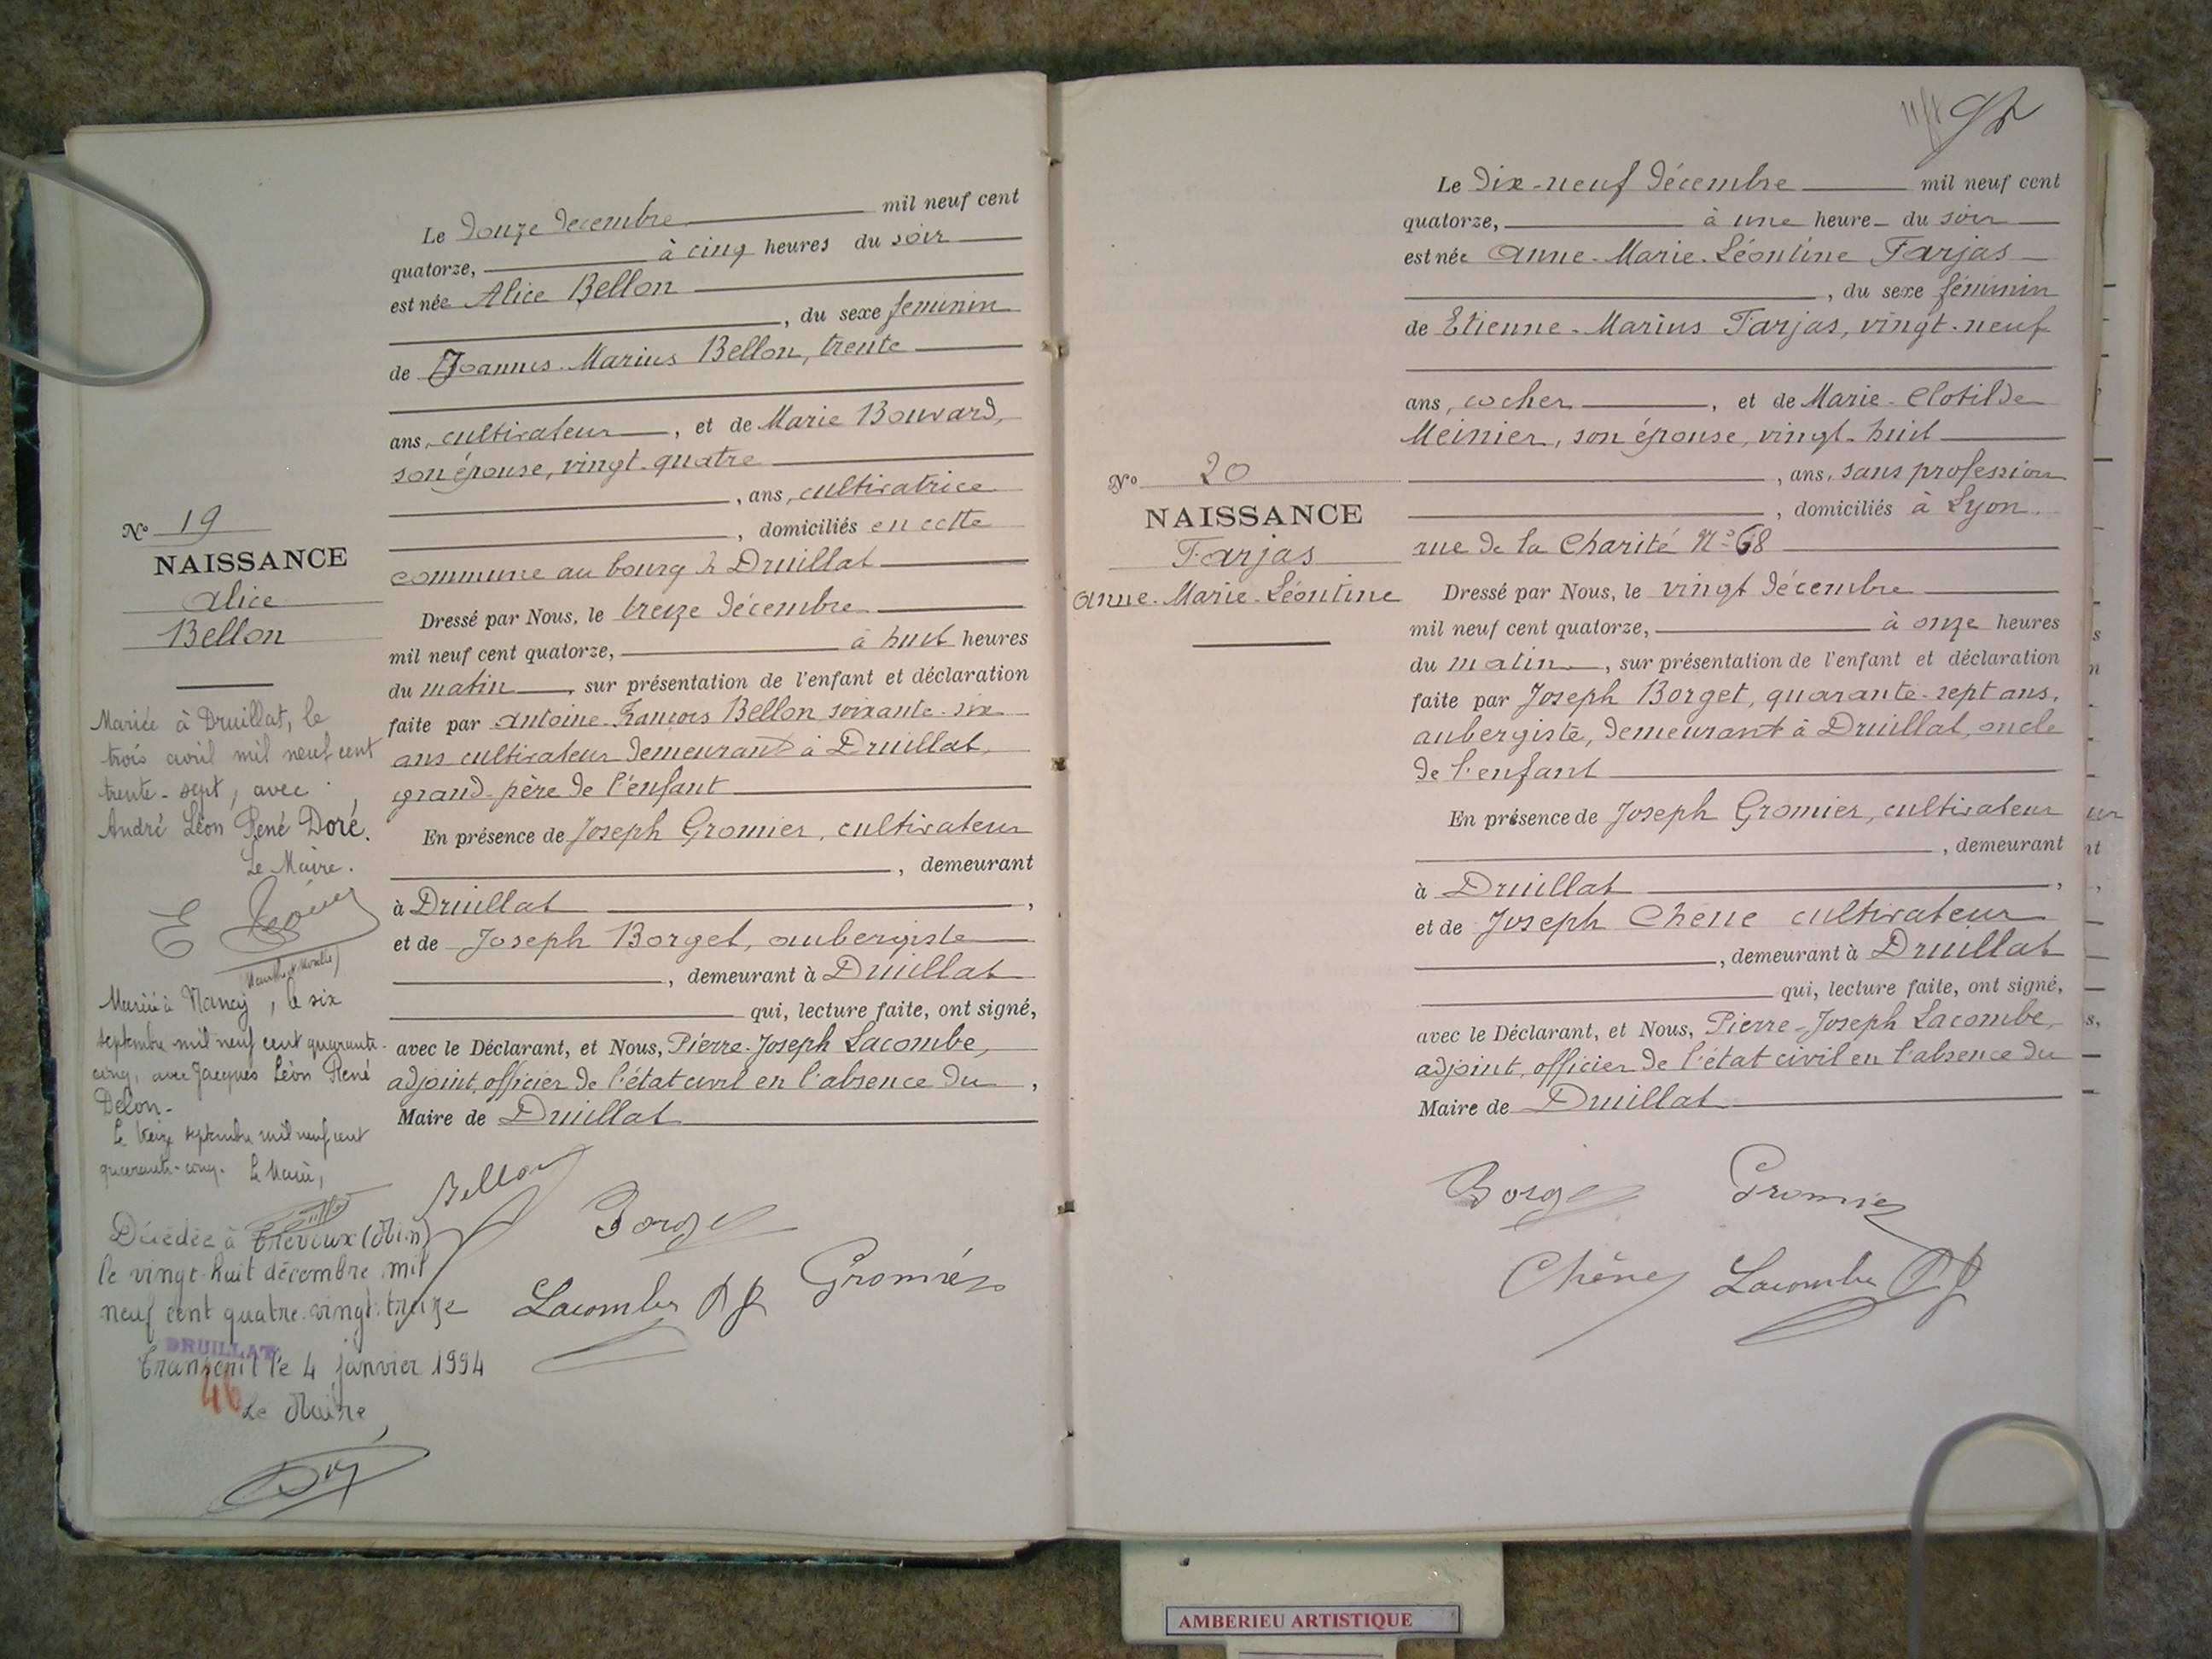 Le douze decembre mil neuf cent
quatorze, à cinq heures du soir
est née Alice Bellon
, du sexe feminin
de Joannes-Marius Bellon, trente
ans, cultivateur, et de Marie Bouvard,
son épouse, vingt-quatre
, ans, cultivatrice
, domiciliés en cette
commune au bourg de Druillat
Dressé par Nous, le treize décembre
mil neuf cent quatorze, à huit heures
du matin, sur présentation de l'enfant et déclaration
faite par Antoine-François Bellon soixante-six
ans cultivateur demeurant à Druillat,
grand-père de l'enfant
En présence de Joseph Gromier, cultivateur
, demeurant
à Druillat,
et de Joseph Borget, aubergiste
, demeurant à Druillat
qui, lecture faite, ont signé,
avec le Déclarant, et Nous, Pierre-Joseph Lacombe,
adjoint, officier de l'état civil en l'absence du,
Maire de Druillat
Bellon
Borget
Lacombe
Gromier
No 19
NAISSANCE
Alice
Bellon
Mariée à Druillat, le
trois avril mil neuf cent
trente-sept, avec
André Léon René Doré.
Le Maire.
(Meurthe & Moselle)
Mariée à Nancy, le six
septembre mil neuf cent quarante-
cinq, avec Jacques Léon René
Delon-
Le treize septembre mil neuf cent
quarante-cinq. Le Maire,
Décédée à Trévoux (Ain)
le vingt-huit décembre mil
neuf cent quatre-vingt-treize
DRUILLAT
Transcrit le 4 janvier 1994
46
Le Maire,
Le dix-neuf décembre mil neuf cent
quatorze, à une heure du soir
est née Anne-Marie-Léontine Farjas
, du sexe féminin
de Etienne-Marius Farjas, vingt-neuf
ans, cocher, et de Marie-Clotilde
Meinier, son épouse, vingt-huit
, ans, sans profession
, domiciliés à Lyon.
rue de la Charité No 68
Dressé par Nous, le vingt décembre
mil neuf cent quatorze, à onze heures
du matin, sur présentation de l'enfant et déclaration
faite par Joseph Borget, quarante-sept ans,
aubergiste, demeurant à Druillat, oncle
de l'enfant
En présence de Joseph Gromier, cultivateur
, demeurant
à Druillat,
et de Joseph Chêne cultivateur
, demeurant à Druillat
qui, lecture faite, ont signé,
avec le Déclarant, et Nous, Pierre-Joseph Lacombe,
adjoint, officier de l'état civil en l'absence du
Maire de Druillat
Borget
Gromier
Chêne
Lacombe
No 20
NAISSANCE
Farjas
Anne-Marie-Léontine
AMBERIEU ARTISTIQUE